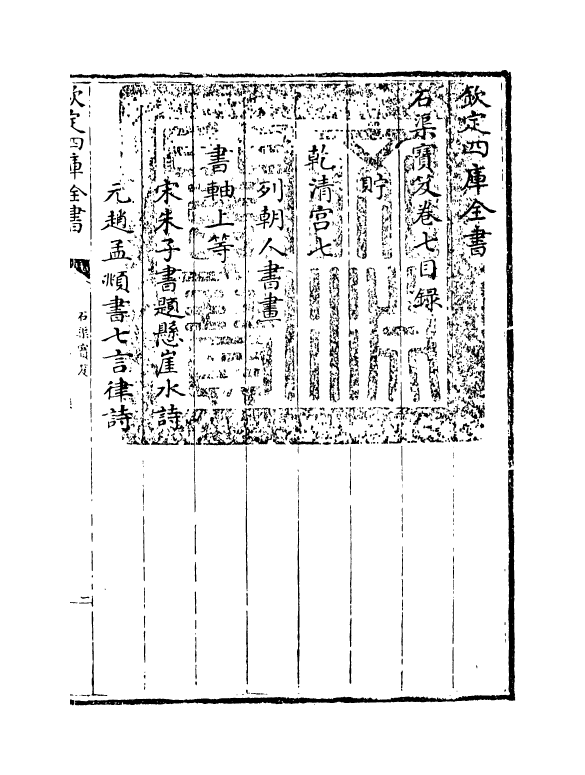 欽定四庫全書
石渠寶笈卷七目錄
貯
乾清宮七
列朝人書畫
書軸上等
宋朱子書題懸崖水詩
元趙孟頫書七言律詩
欽定四庫全書
石渠寶笈
二